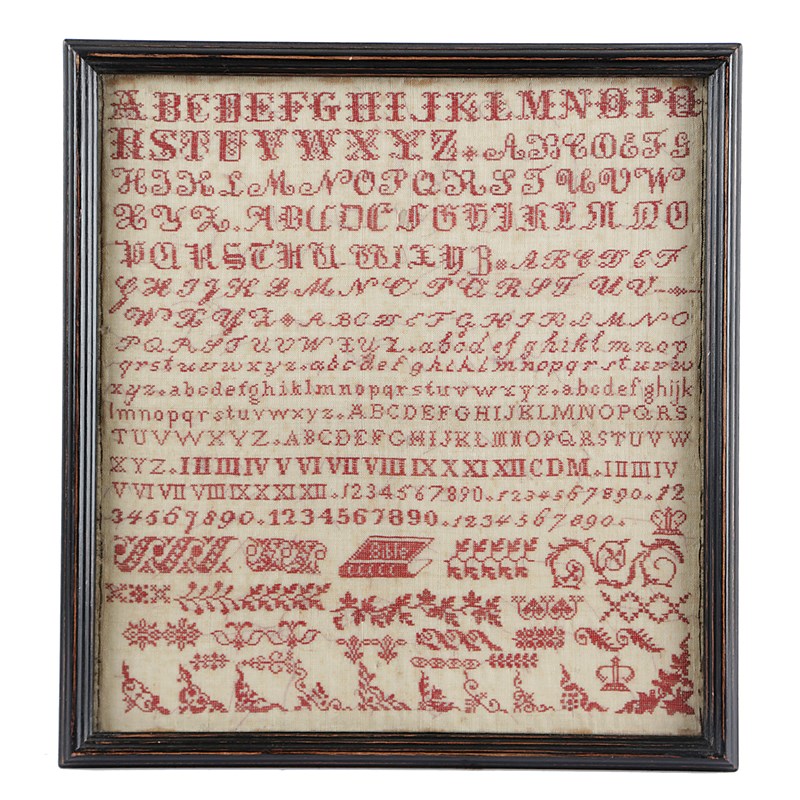 ABCDEFGHIJKLMNOPQ
RSTUVWXYZ ABCDEFG
HIKLMNOPQRSTUVW
XYZ. ABCDEFGHIKLMNO
PQRSTHUWXYZ. ABCDEF
GHIJKLMNOPQRSTUV
WXYZ ABCDEFGHIKLMNO
PQRSTUVWXYZ. abcdefghiklmnop
qrstuvwxyz. abcdefghiklmnopqrstuvw
xyz. abcdefghiklmnopqrstuvwxyz. abcdefghijk
lmnopqrstuvwxyz. ABCDEFGHIJKLMNOPQRS
TUVWXYZ. ABCDEFGHIJKLMNOPQRSTUVW
XYZ. I II III IV V VI VII VIII IX X XI XII C D M. I II III IV
V VI VII VIII IX X XI XII. 1234567890. 1234567890. 12
34567890. 1234567890. 1234567890.
Bible